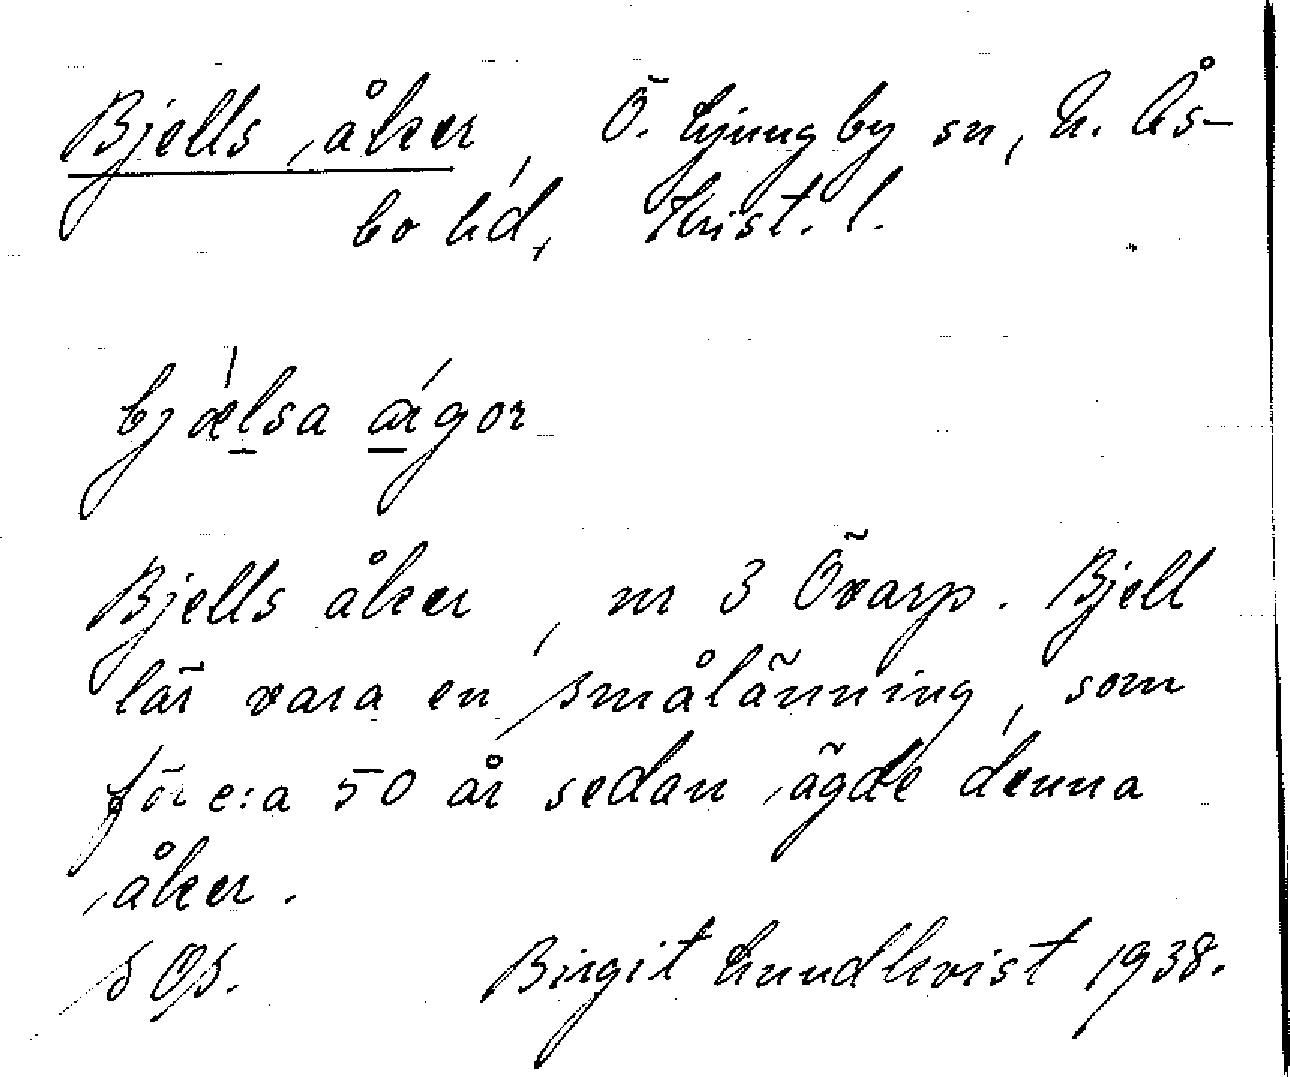 Bjells åker, Ö. Ljungby sn, N. Ås-
bo hd, Krist. l.
bjælsa ægor
Bjells åker, nr 3 Övarp. Bjell
lär vara en smålänning, som
för c:a 50 år sedan ägde denna
åker.
Birgit Lundkvist 1938.